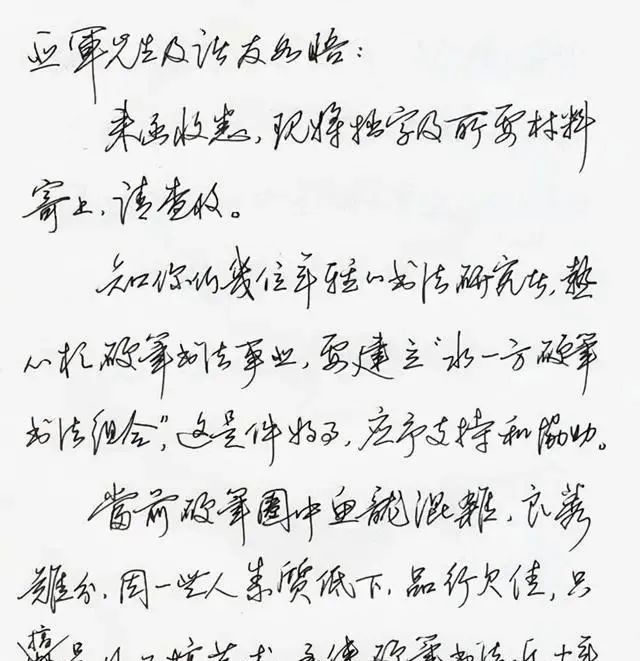 亚軍先生及诸友如晤：
来函收悉，现将拙字及所要材料
寄上，请查收。
知你们幾位年轻的书法研究者，熱
心於硬筆书法事业，要建立“水一方硬筆
书法组合”，这是件好事，应予支持和協助。
當前硬筆圈中魚龍混雜，良莠
難分，因一些人素質低下，品行欠佳，只
搞